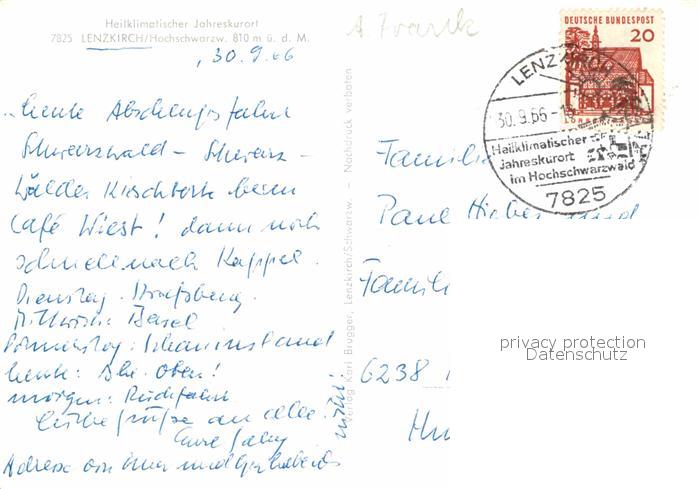 Heilklimatischer Jahreskurort
7825 LENZKIRCH/Hochschwarzw. 810 m ü. d. M.
30.9.66
heute
Schwarzwald - Schwarz-
wälder Kirschtorte beim
Café Wiest! dann noch
schnell nach Kappel.
Dienstag. Straßburg.
Mittwoch: Basel
Donnerstag: Schauinsland
heute: Sh. oben!
morgen: Rückfahrt
Liebe Grüße an alle!
Eure
Adresse von
A Frank
Verlag: Karl Brugger, Lenzkirch/Schwarzw. Nachdruck verboten
DEUTSCHE BUNDESPOST
20
LENZKIRCH
30.9.66
Heilklimatischer
Jahreskurort
im Hochschwarzwald
7825
Familie
Paul und
Famil
6238
privacy protection
Datenschutz